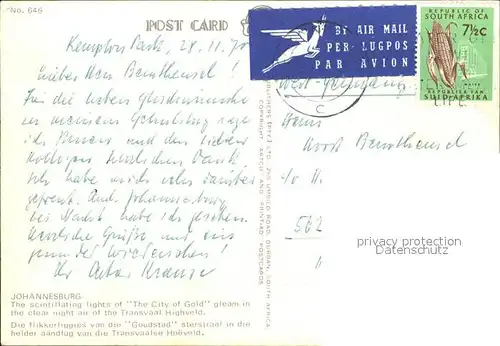 No. 646
POST CARD
BY AIR MAIL
PER LUGPOS
PAR AVION
REPUBLIC OF
SOUTH AFRICA
7½C
REPUBLIEK VAN
SUID-AFRIKA
Kempton Park, 28.11.70
Lieber Herr Berntheusel!
Für die lieben Glückwünsche
zu meinem Geburtstag sage
ich Ihnen und den lieben
Kollegen herzlichen Dank.
Ich habe mich sehr darüber
gefreut. Auch Johannesburg
bei Nacht habe ich gesehen.
Herzliche Grüße und ein
gesundes Wiedersehen!
Ihr Krause
West-Germany
Herrn
Horst Berntheusel
562
profany protection
www.oldthing.de
JOHANNESBURG
The scintillating lights of "The City of Gold" gleam in
the clear night air of the Transvaal Highveld.
Die flikkerliggies van die "Goudstad" sterstraal in die
helder aandlug van die Transvaalse Hoëveld.